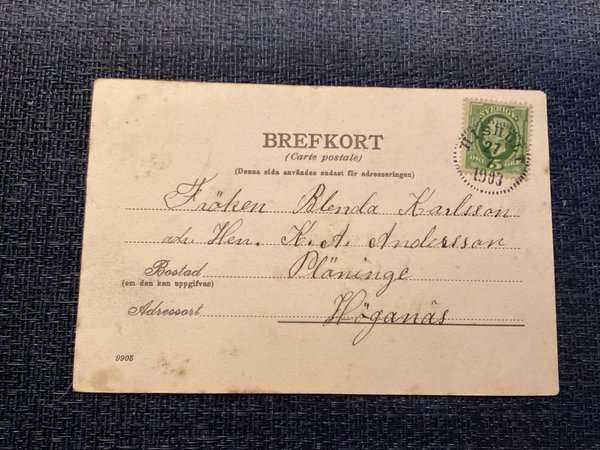 BREFKORT
(Carte postale)
(Denna sida användes endast för adresseringen)
SVERIGE
5
ÖRE
27
1903
Fröken Blenda Karlsson
adr. Herr. K. A. Andersson
Bostad Pläninge
(om den kan uppgifvas)
Adressort Höganäs
9905